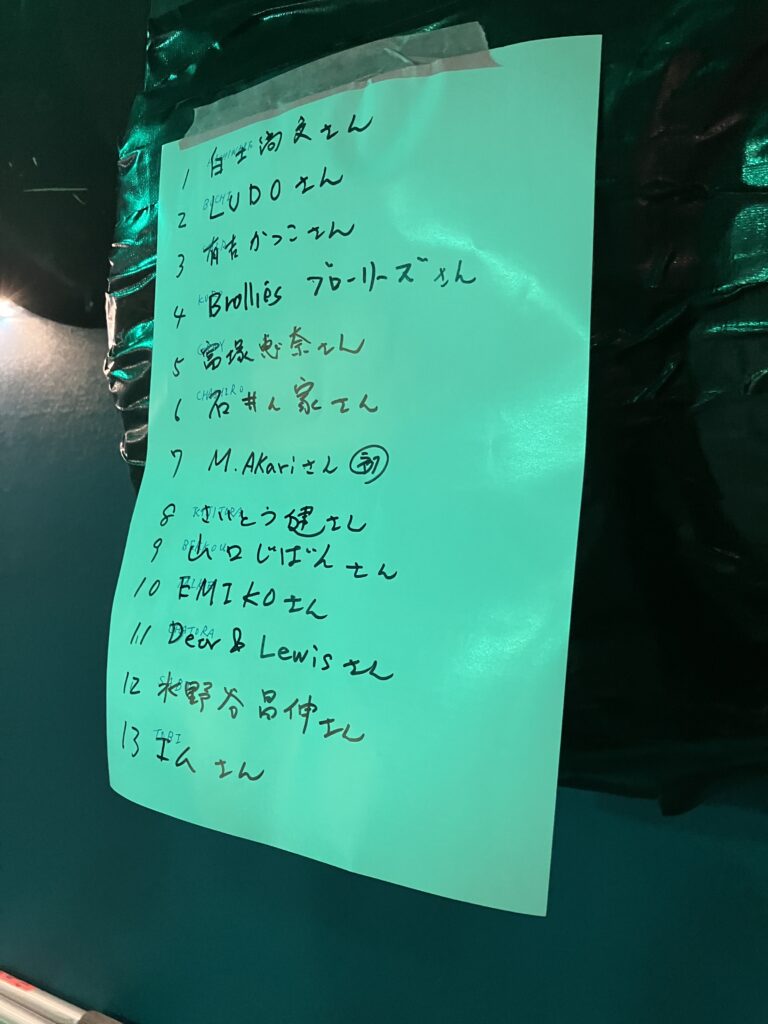 1 白土尚文さん
2 LUDOさん
3 有吉かつこさん
4 Brolliés ブローリーズさん
5 富塚恵奈さん
6 石井ん家さん
7 M.AKariさん 初
8 さいとう健さん
9 山口じばんさん
10 EMIKOさん
11 Dear & Lewisさん
12 水野谷昌伸さん
13 エムさん